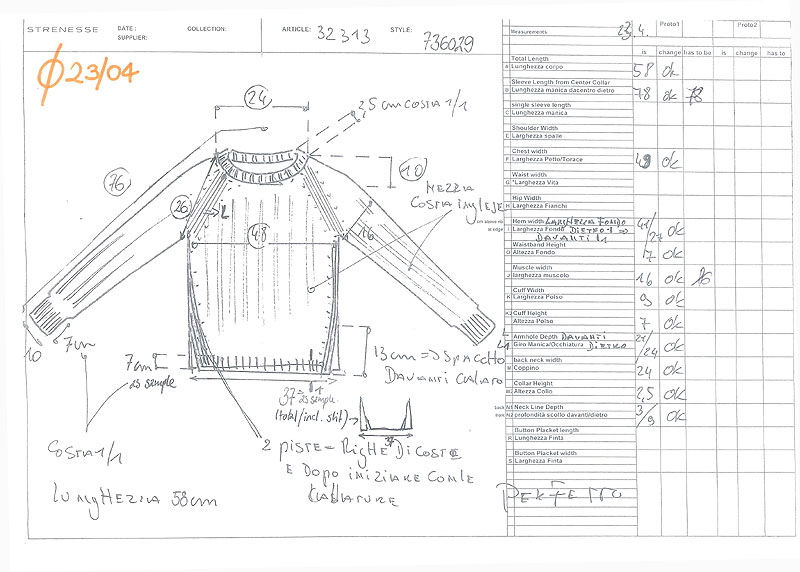 STRENESSE
DATE :
SUPPLIER:
COLLECTION:
ARTICLE: 32313
STYLE: 736029
Ø23/04
24
2,5 cm COSTA 1/1
76
10
MEZZIA
COSTA inglese
26
48
16
10
7cm
7cm
as sample
37
as sample
(total/incl. slit)
13cm => SPACCHETTO
DAVANTI CALATO
COSTA 1/1
2 PISTE = RIGHE DI COSTE
E DOPO INIZIARE CON LE
lungHEZZIA 58cm
Measurements
23.4.
Proto1
Proto2
is
change
has to be
is
change
has to
Total Length
A Lunghezza corpo 58 ok
Sleeve Length from Center Collar
B Lunghezza manica dacentro dietro 78 ok 78
single sleeve length
C Lunghezza manica
Shoulder Width
E Larghezza spalle
Chest width
F Larghezza Petto/Torace 48 ok
Waist width
G *Larghezza Vita
Hip Width
H Larghezza Fianchi
Hem width LARGHEZZA FONDO
I Larghezza Fondo DIETRO => 27 ok
DAVANTI
Waistband Height
O Altezza Fondo 7 ok
Muscle width
J larghezza muscolo 16 ok 16
Cuff Width
K Larghezza Polso 9 ok
Cuff Height
Altezza Polso 7 ok
Armhole Depth DAVANTI
Giro Manica/Occhiatura DIETRO 24 ok
back neck width
M Coppino 24 ok
Collar Height
Altezza Collo 2,5 ok
Neck Line Depth
profondità scollo davanti/dietro 3/9 ok
Button Placket length
R Lunghezza Finta
Button Placket width
S Larghezza Finta
PERFETTO